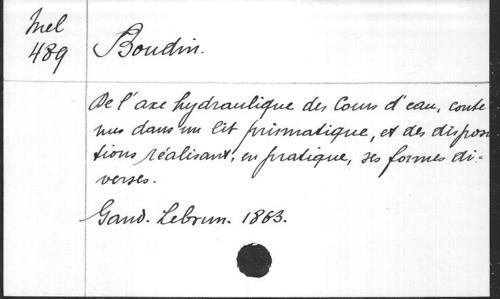 Mel
489
Boudin.
De l'axe hydraulique des Cours d'eau, conte
nus dans un lit prismatique, et des disposi
tions réalisant, en pratique, ses formes di-
verses.
Gand. Lebrun. 1863.